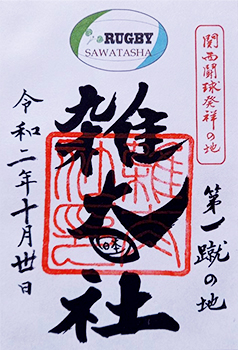 RUGBY
SAWATASHA
関西闘球発祥の地
第一蹴の地
雑太社
令和二年十月卅日